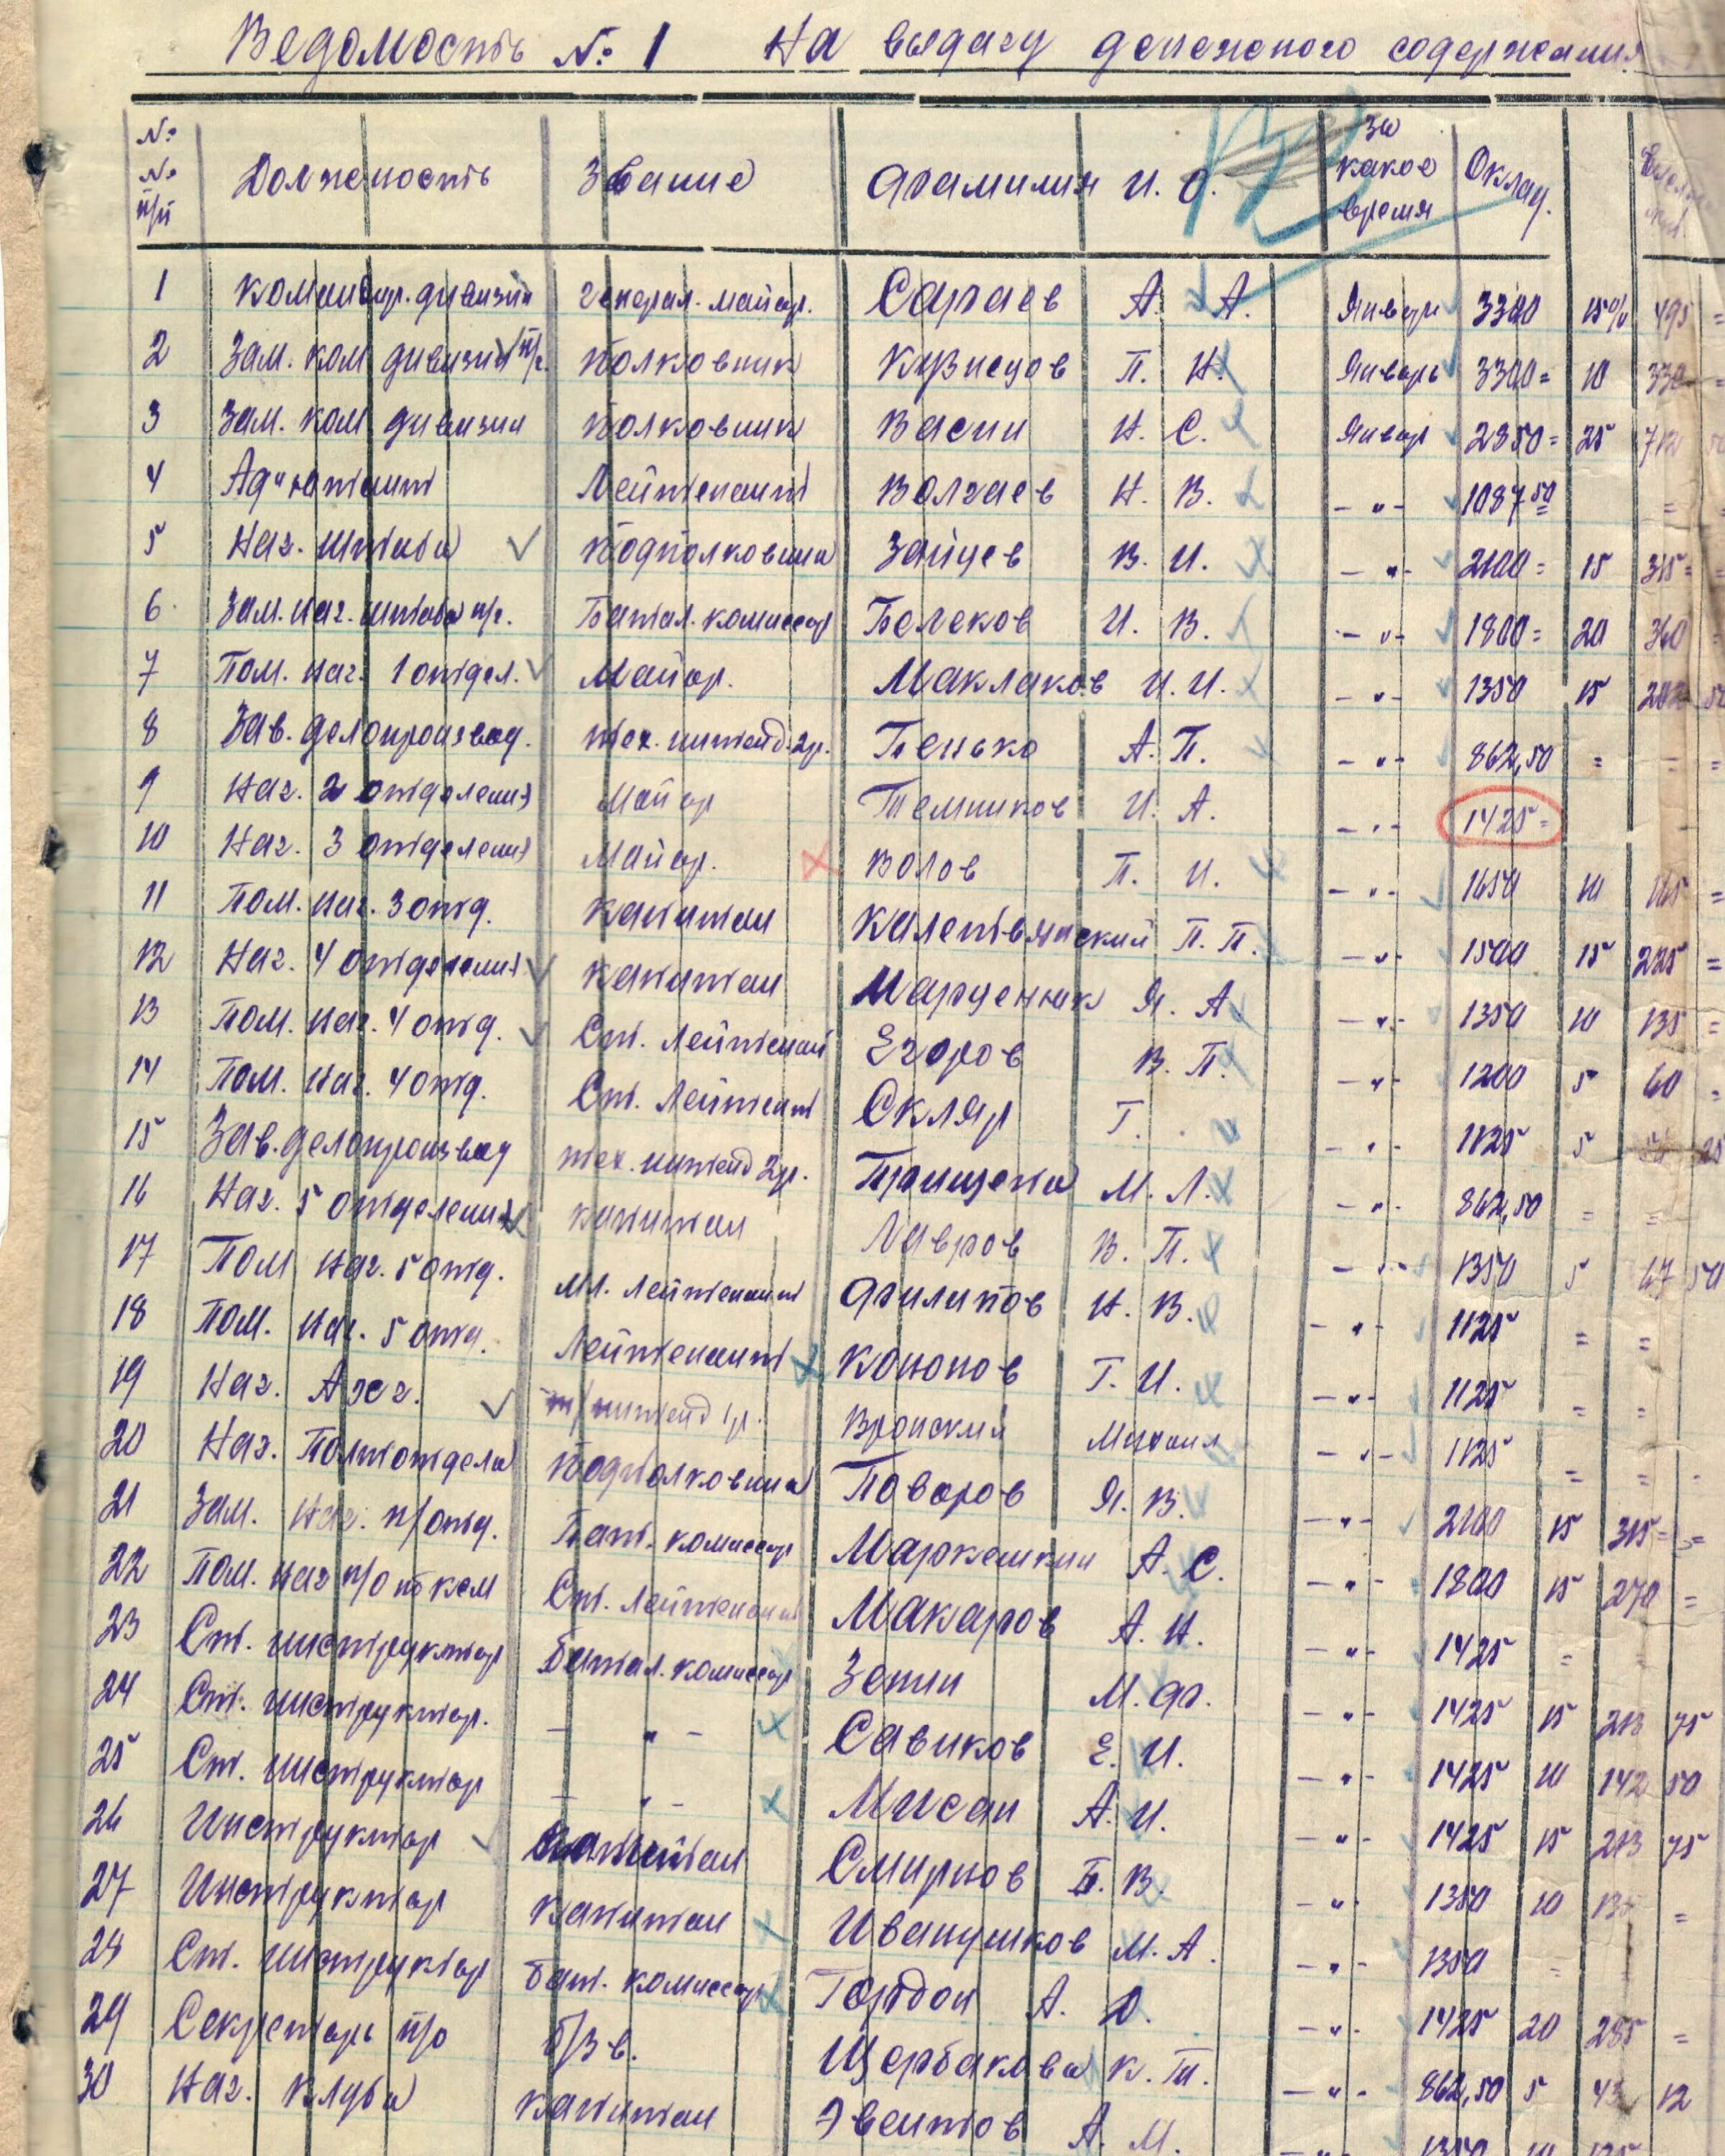 Ведомость № 1 На выдачу денежного содержания
№ № п/п Должность Звание Фамилия И. О. За какое время Оклад.
1 Командир. дивизии генерал. майор. Сараев А. А. Январь 3300 15% 495 =
2 Зам. ком дивизии п/ч. Полковник Кузнецов П. Н. Январь 3300= 10 330 =
3 Зам. ком дивизии Полковник Васин Н. С. Январ 2850= 25 712 50
4 Адъютант Лейтенант Волгаев Н. В. -"- 1087 50 =
5 Нач. штаба Подполковник Зайцев В. И. -"- 2100= 15 315= =
6 Зам. нач. штаба п/ч. Батал. комиссар Белеков И. В. -"- 1800= 20 360 =
7 Пом. нач. 1 отдел. Майор. Маклаков И. И. -"- 1350 15 202 50
8 Зав. делопроизвод. тех. интенд. 2р. Пенько А. П. -"- 862,50 = - =
9 Нач. 2 отделения Майор Темников И. А. -"- 1425=
10 Нач. 3 отделения Майор. Волов П. И. -"- 1650 10 165 =
11 Пом. нач. 3 отд. Капитан П. П. -"- 1500 15 225 =
12 Нач. 4 отделения Капитан Марценюк Я. А. -"- 1350 10 135 =
13 Пом. нач. 4 отд. Ст. Лейтенант Егоров В. П. -"- 1200 5 60 =
14 Пом. нач. 4 отд. Ст. Лейтенант Скляр Г. -"- 1125 5 56 25
15 Зав. делопроизвод тех. интенд 2р. М. Л. -"- 862,50 = =
16 Нач. 5 отделения Капитан Лавров В. П. -"- 1350 5 67 50
17 Пом нач. 5 отд. Мл. Лейтенант Филипов Н. В. -"- 1125 = =
18 Пом. нач. 5 отд. Лейтенант Кононов Г. И. -"- 1125 = =
19 Нач. АХЧ. т/интенд 1р. Вронский Михаил -"- 1125 = = -
20 Нач. Политотдела Подполковник Поваров Я. В. -"- 2100 15 315= =
21 Зам. Нач. п/отд. Бат. комиссар Маркешкин А. С. -"- 1800 15 270 =
22 Пом. нач п/о по ксм Ст. Лейтенант Макаров А. Н. -"- 1425 =
23 Ст. инструктор Батал. комиссар Зенин М. Ф. -"- 1425 15 213 75
24 Ст. инструктор. -"- Савиков Е. И. -"- 1425 10 142 50
25 Ст. инструктор -"- Мисан А. И. -"- 1425 15 213 75
26 Инструктор Капитан Смирнов П. В. -"- 1350 10 135 =
27 Инструктор Капитан Иванушков М. А. -"- 1350
28 Ст. инструктор Бат. комиссар Гордон А. О. -"- 1425 20 285 =
29 Секретарь п/о б/зв. Щербакова К. Т. -"- 862,50 5 43 12
30 Нач. Клуба Капитан Эвентов А. М. -"- 1350 10 135